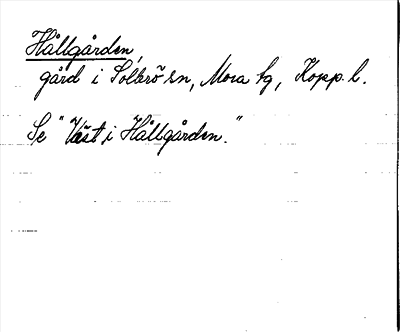 Hållgården,
gård i Solbrö sn, Mora tg, Kopp. l.
Se "Väst i Hållgården."